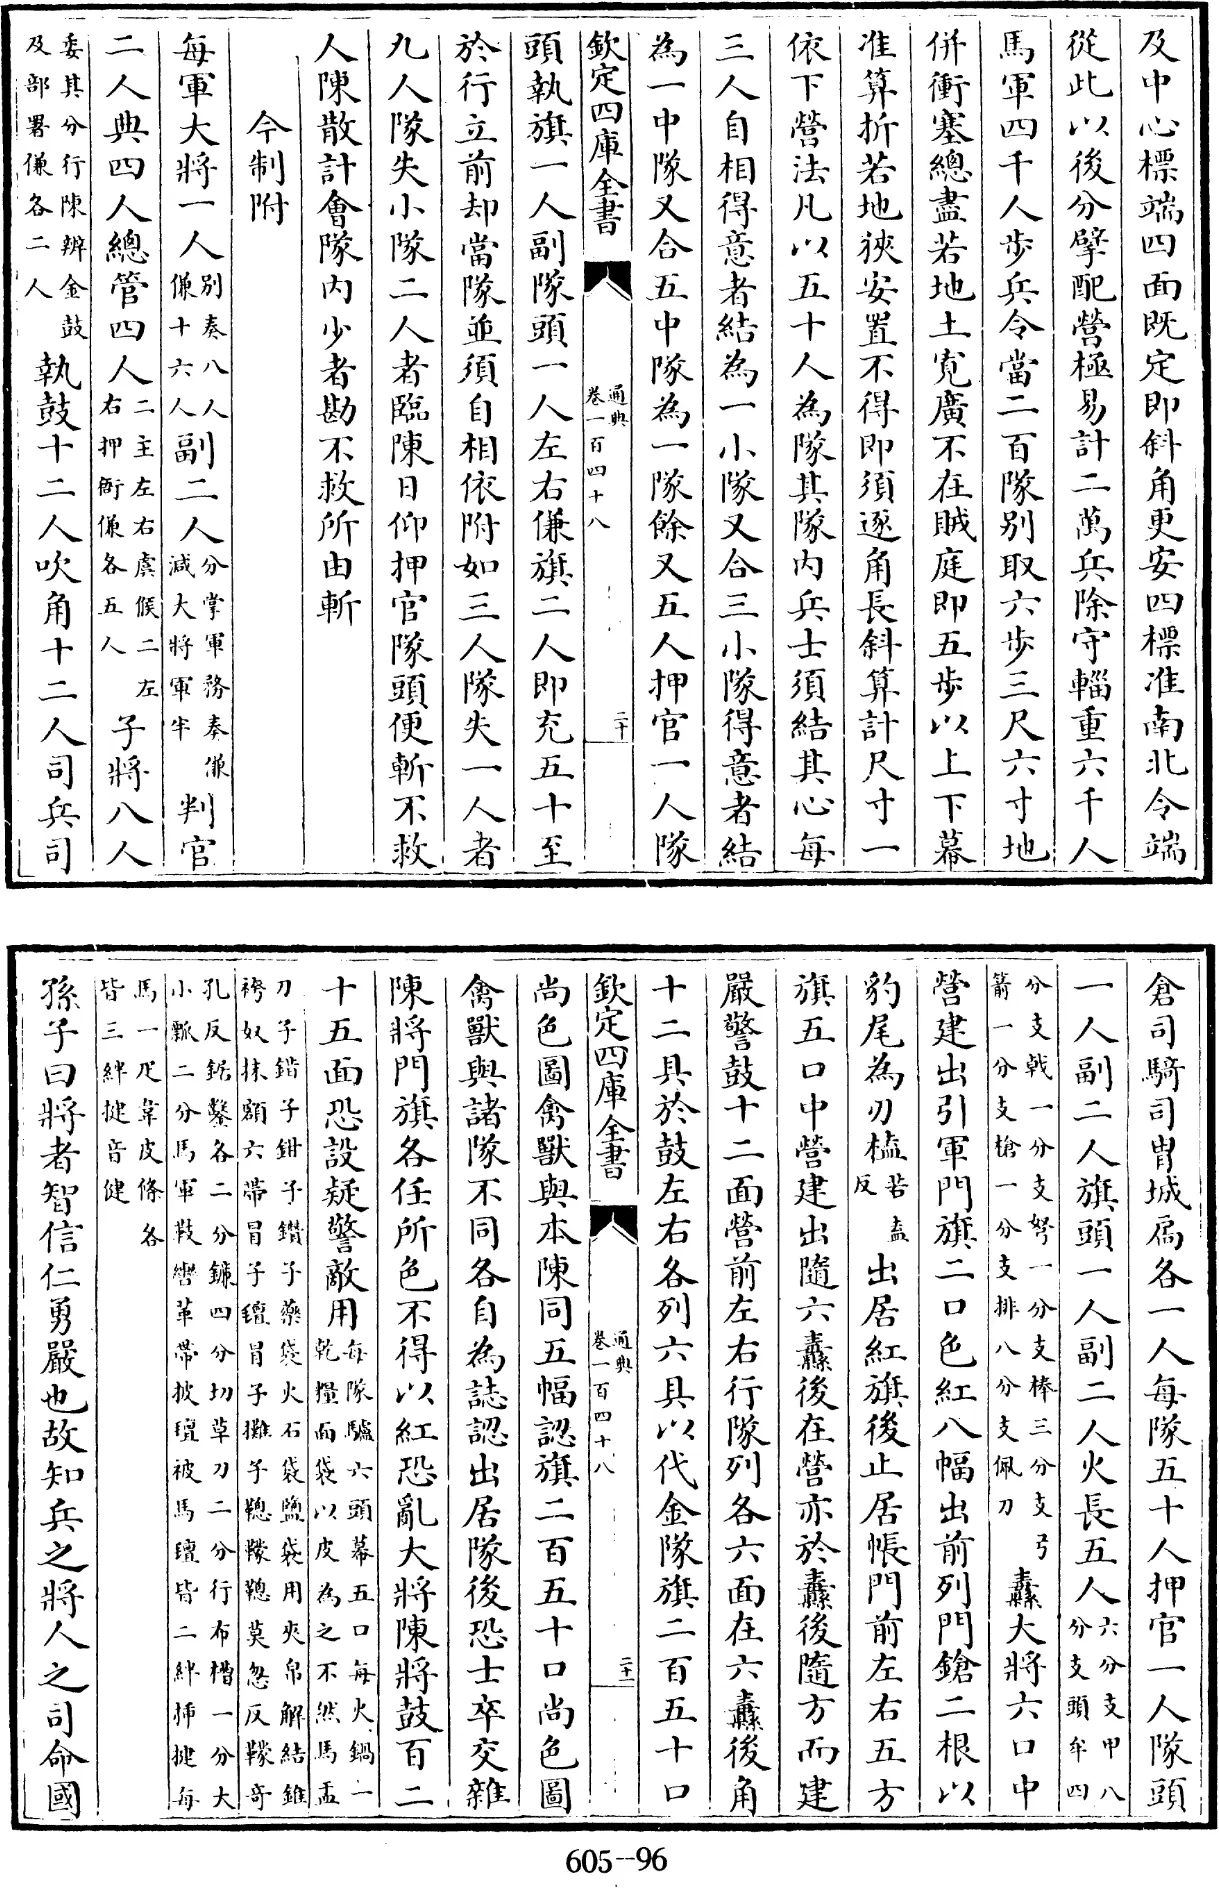 及中心標端四面既定即斜角更安四標准南北令端
從此以後分擘配營極易計二萬兵除守輜重六千人
馬軍四千人步兵令當二百隊別取六步三尺六寸地
併衝塞總盡若地土寬廣不在賊庭即五步以上下幕
准算折若地狹安置不得即須逐角長斜算計尺寸一
依下營法凡以五十人為隊其隊内兵士須結其心每
三人自相得意者結為一小隊又合三小隊得意者結
為一中隊又合五中隊為一隊餘又五人押官一人隊
欽定四庫全書
通典
卷一百四十八
二十
頭執旗一人副隊頭一人左右傔旗二人即充五十至
於行立前却當隊並須自相依附如三人隊失一人者
九人隊失小隊二人者臨陳日仰押官隊頭便斬不救
人陳散計會隊内少者勘不救所由斬
今制附
每軍大將一人別奏八人傔十六人副二人分掌軍務奏傔減大將軍半判官
二人典四人總管四人二主左右虞候二左右押衙傔各五人子將八人
委其分行陳辨金鼓及部署傔各二人執鼓十二人吹角十二人司兵司
倉司騎司胄城局各一人每隊五十人押官一人隊頭
一人副二人旗頭一人副二人火長五人六分支甲八分支頭牟四
分支戟一分支弩一分支棒三分支弓箭一分支槍一分支排八分支佩刀纛大將六口中
營建出引軍門旗二口色紅八幅出前列門鎗二根以
豹尾為刃榼苦盍反出居紅旗後止居帳門前左右五方
旗五口中營建出隨六纛後在營亦於纛後隨方而建
嚴警鼓十二面營前左右行隊列各六面在六纛後角
十二具於鼓左右各列六具以代金隊旗二百五十口
欽定四庫全書
通典
卷一百四十八
二十一
尚色圖禽獸與本陳同五幅認旗二百五十口尚色圖
禽獸與諸隊不同各自為誌認出居隊後恐士卒交雜
陳將門旗各任所色不得以紅恐亂大將陳將鼓百二
十五面恐設疑警敵用每隊驢六頭幕五口每火鍋一乾糧面袋以皮為之不然馬盂
刀子錯子鉗子鑽子藥袋火石袋鹽袋用夾帛解結錐袴奴抹額六帶冒子氊冒子攤子䩺鞴䩺莫忽反鞴奇
孔反鋸鑿各二分鎌四分切草刀二分行布槽一分大小瓢二分馬軍鞍轡革帶披氊被馬氊皆二絆插揵每
馬一疋韋皮條各皆三絆揵音健
孫子曰將者智信仁勇嚴也故知兵之將人之司命國
605--96